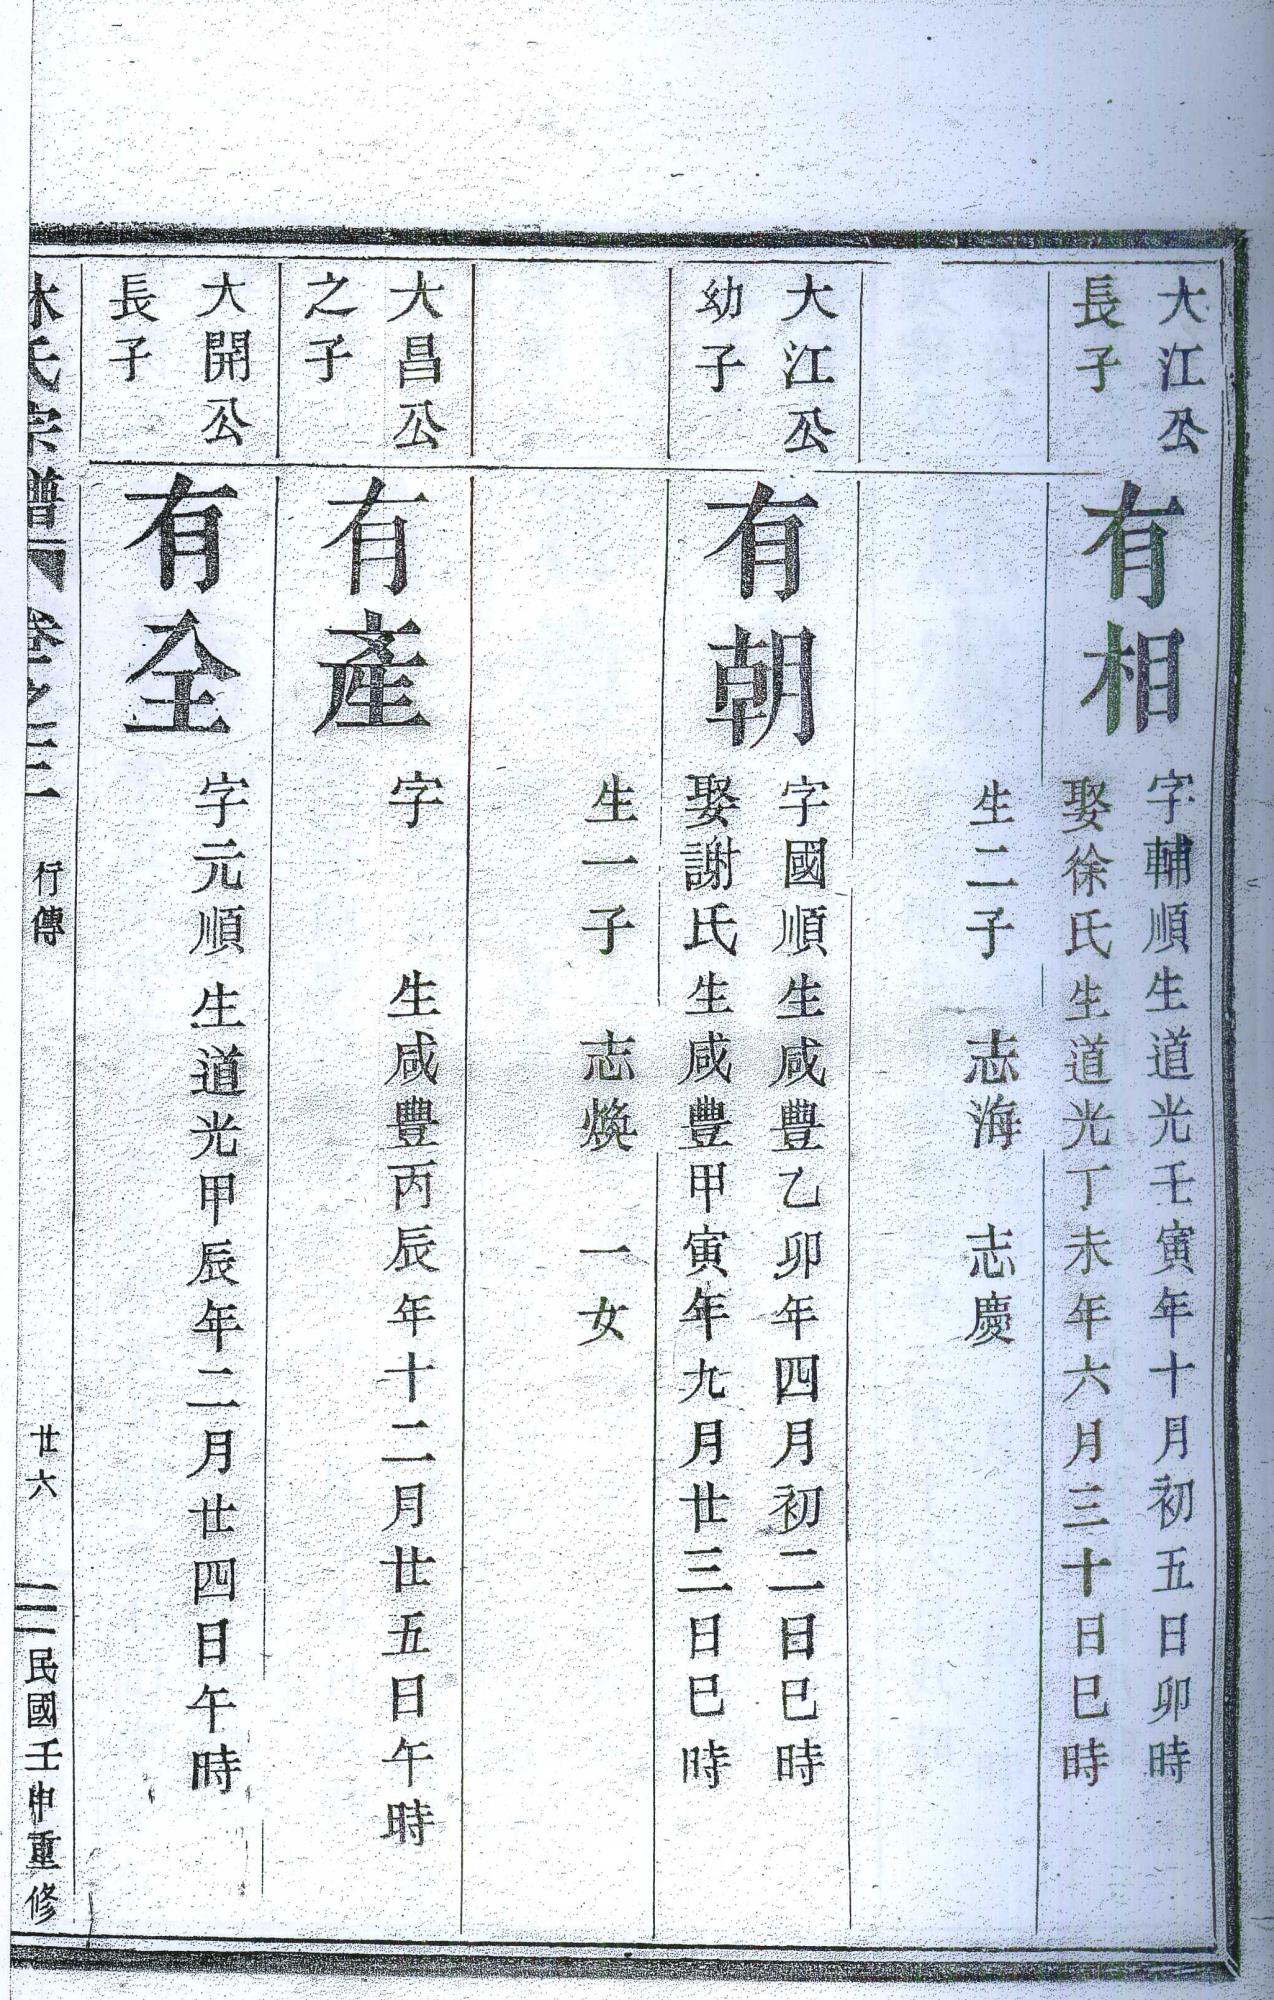 大江公
長子
有相
字輔順生道光壬寅年十月初五日卯時
娶徐氏生道光丁未年六月三十日巳時
生二子 志海 志慶
大江公
幼子
有朝
字國順生咸豐乙卯年四月初二日巳時
娶謝氏生咸豐甲寅年九月廿三日巳時
生一子 志煥 一女
大昌公
之子
有產
字 生咸豐丙辰年十二月廿五日午時
大開公
長子
有全
字元順生道光甲辰年二月廿四日午時
林氏宗譜 卷之三 行傳 廿六 民國壬申重修